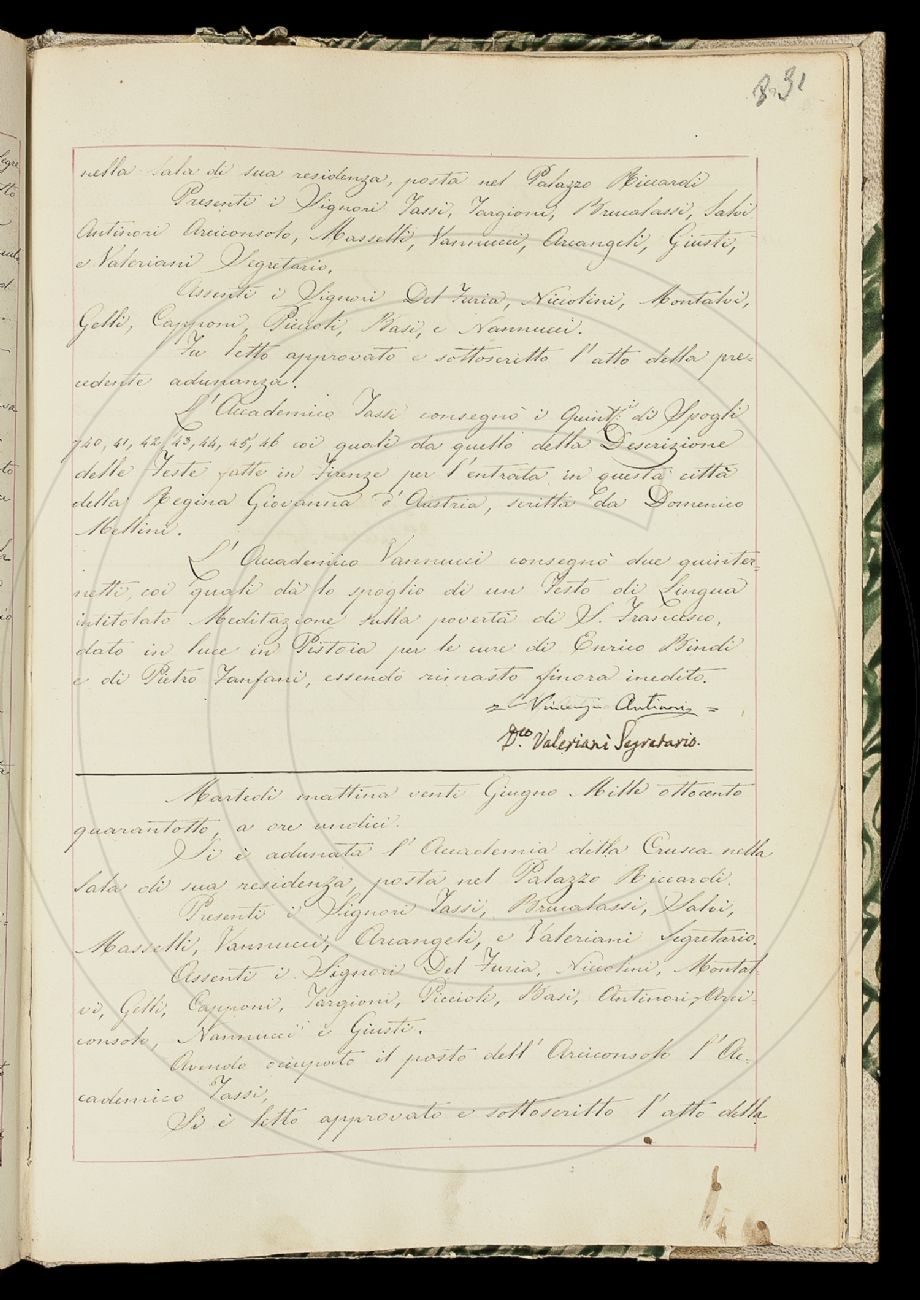 31
nella Sala di sua residenza, posta nel Palazzo Riccardi
Presenti i Signori Tassi, Targioni, Brucalassi, Salvi
Antinori Arciconsolo, Masselli, Vannucci, Arcangeli, Giusti,
e Valeriani Segretario.
Assenti i Signori Del Furia, Niccolini, Montalvi,
Gelli, Capponi, Piccioli, Basi, e Nannucci.
Fu letto approvato e sottoscritto l'atto della pre-
cedente adunanza.
L'Accademico Tassi consegnò i Quint.i di Spogli
40, 41, 42, 43, 44, 45, 46 coi quali dà quello della Descrizione
delle Feste fatte in Firenze per l'entrata in questa città
della Regina Giovanna d'Austria, scritta da Domenico
Mellini.
L'Accademico Vannucci consegnò due quinter-
netti, coi quali dà lo spoglio di un Testo di Lingua
intitolato Meditazione sulla povertà di S. Francesco,
dato in luce in Pistoia per le cure di Enrico Bindi
e di Pietro Fanfani, essendo rimasto finora inedito.
Vincenzio Antinori
D.co Valeriani Segretario.
Martedì mattina venti Giugno Mille ottocento
quarantotto, a ore undici.
Si è adunata l'Accademia della Crusca nella
Sala di sua residenza, posta nel Palazzo Riccardi.
Presenti i Signori Tassi, Brucalassi, Salvi,
Masselli, Vannucci, Arcangeli, e Valeriani Segretario.
Assenti i Signori Del Furia, Niccolini, Montal
vi, Gelli, Capponi, Targioni, Piccioli, Basi, Antinori Arci-
consolo, Nannucci e Giusti.
Avendo occupato il posto dell'Arciconsolo l'Ac-
cademico Tassi,
Si è letto approvato e sottoscritto l'atto della